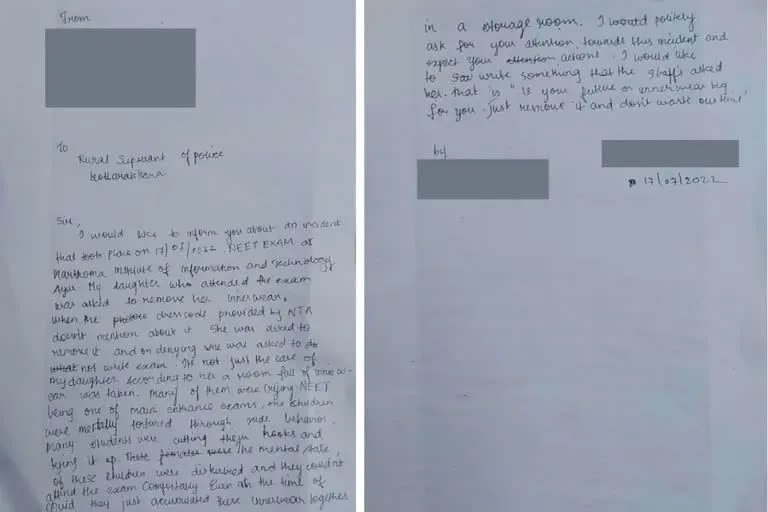 From
To
Rural Supetant of police
kottarakkara
Sir,
I would like to inform you about an incident
that took place on 17/07/2022. NEET EXAM at
Marthoma Institute of Information and Technology
Ayur My daughter who attended the exam
was asked to remove her innerwear,
when the dresscode provided by NTA
doesn't mention about it She was asked to
remove it and on denying she was asked to do
what not write exam. It's not just the case of
my daughter. According to her a room full of innerw-
ear was taken. Many of them were crying NEET
being one of main entrance exams, the children
were mentally tortured through rude behavior.
Many students were cutting their hooks and
tying it up. The mental state
of these children were disturbed and they couldn't
attend the exam comfortably Even at the time of
covid they just accumulated these innerwear together
in a storage room. I would politely
ask for your attention towards this incident and
expect your attention actions. I would like
to write something that the staffs asked
her. that is "Is your future or innerwear big
for you. Just remove it and don't waste our time"
by
17/07/2022